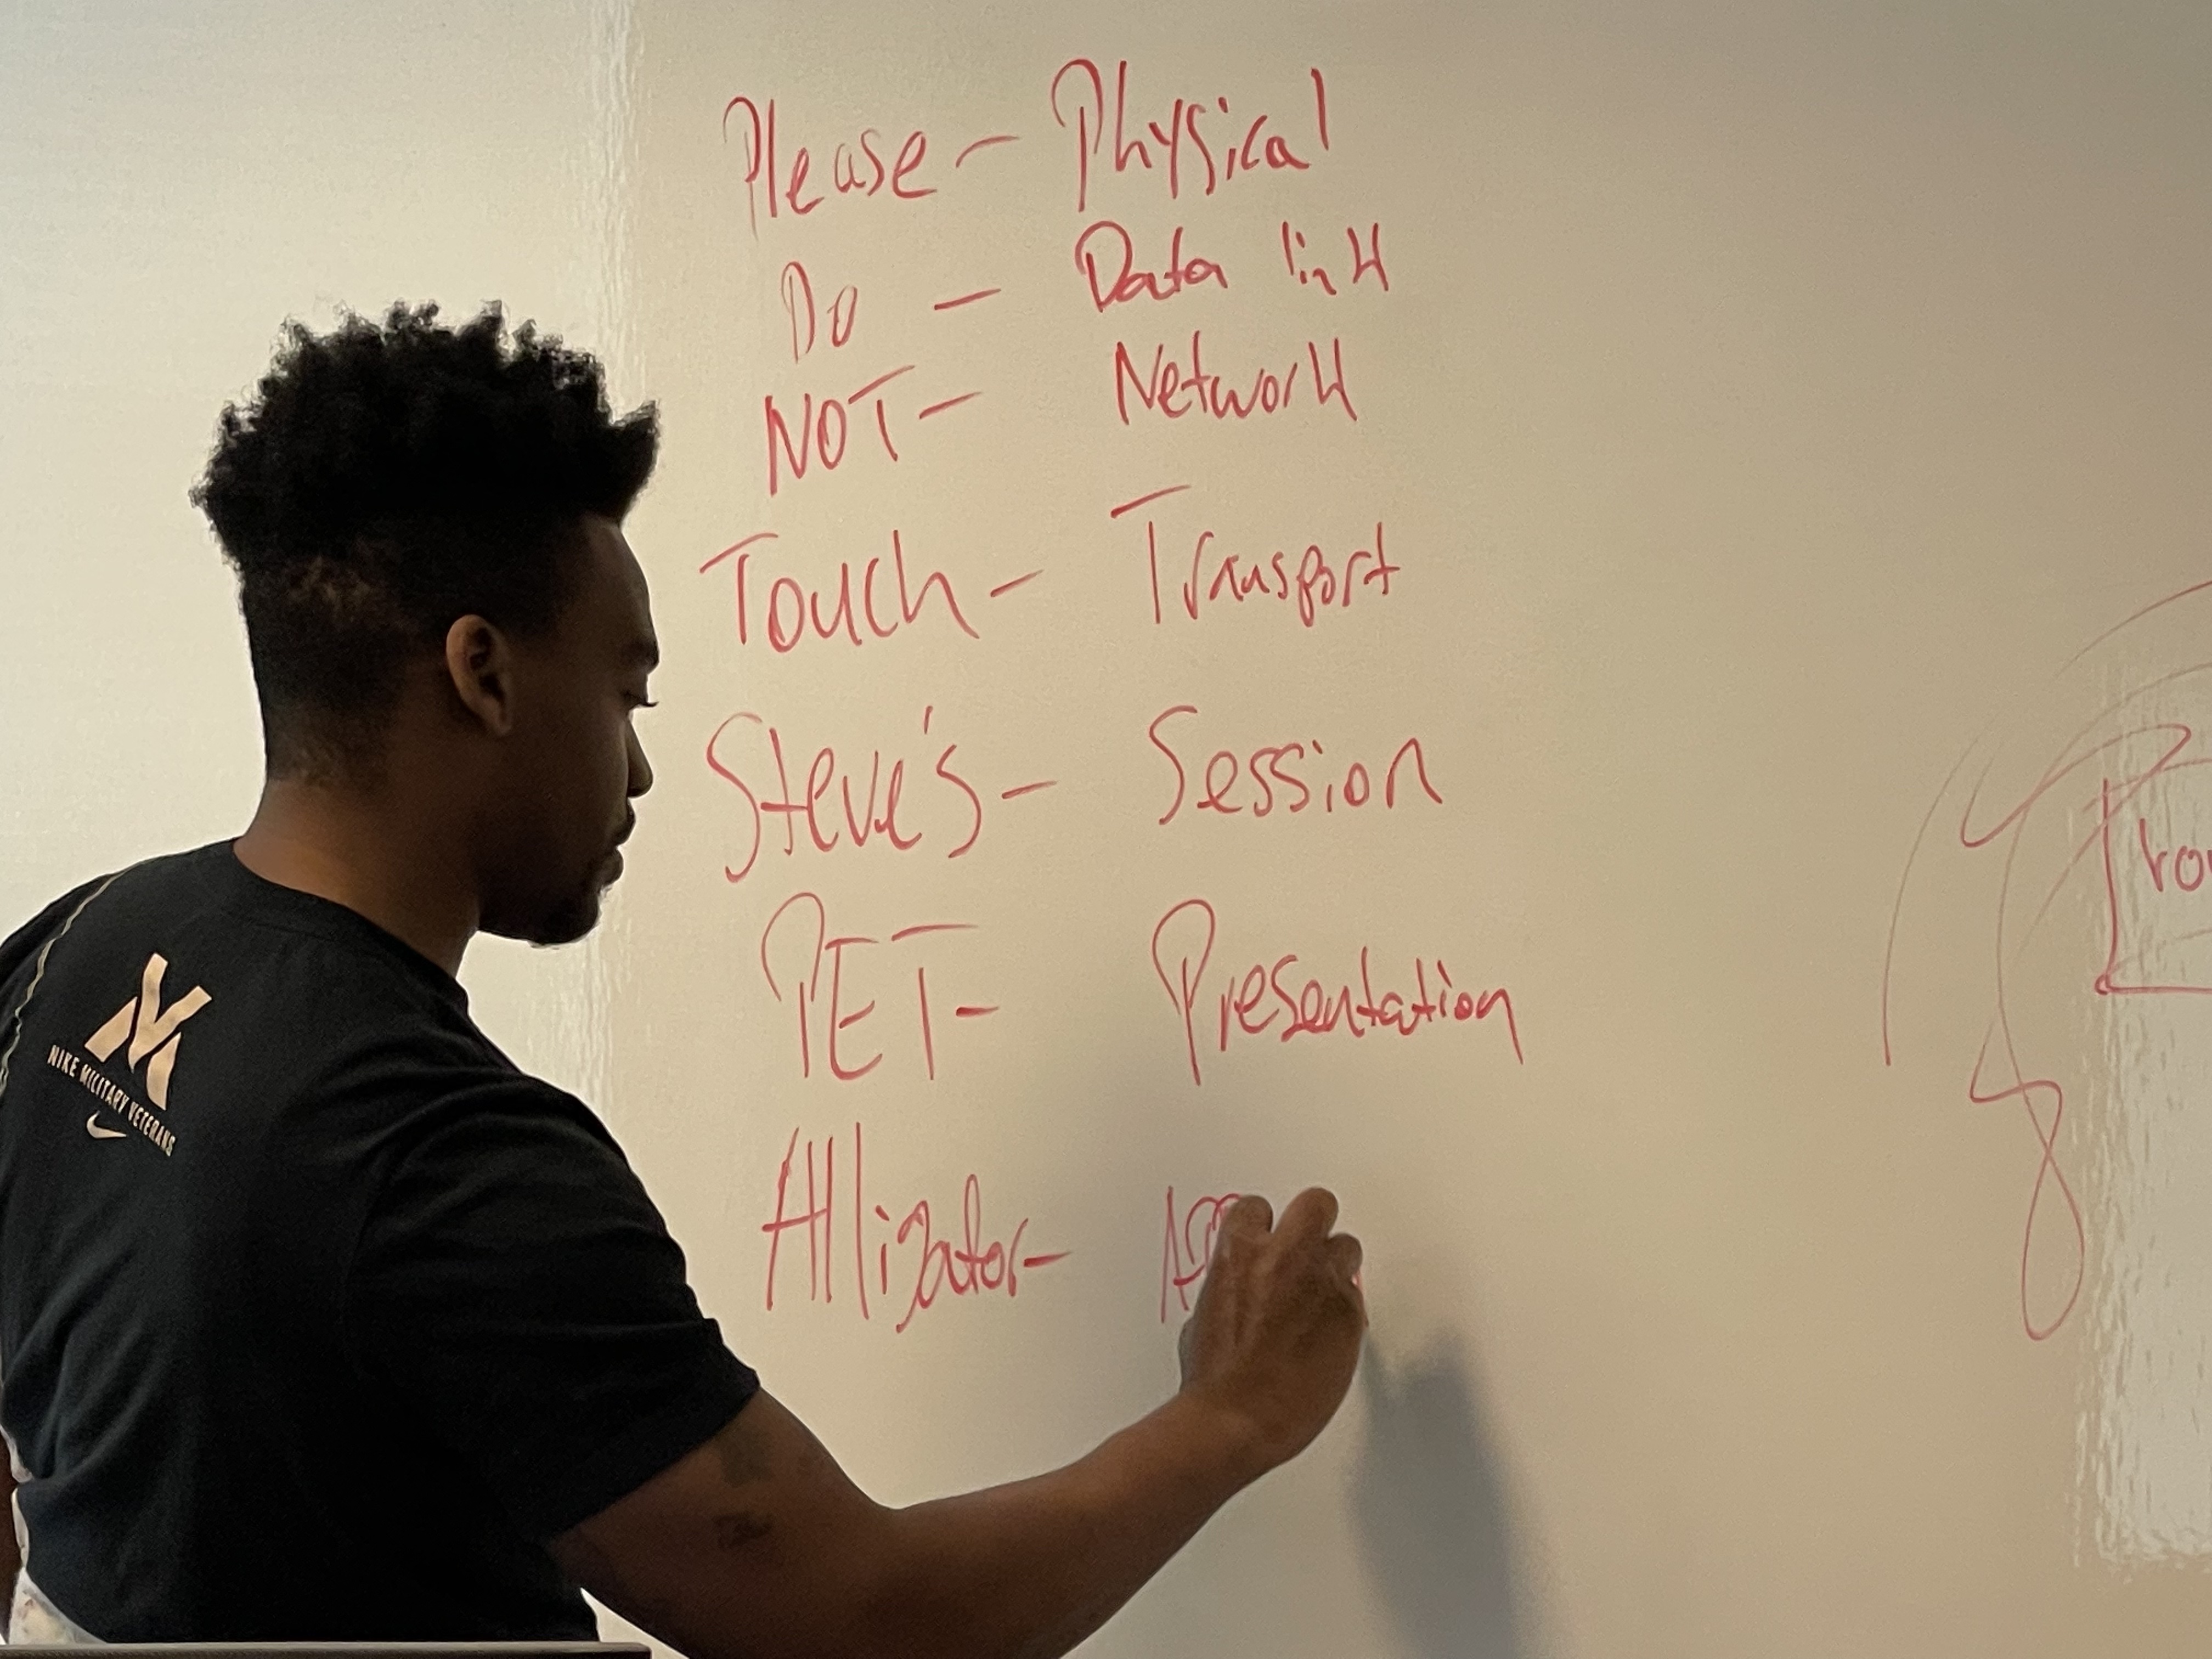 Please - Physical
Do - Data link
NOT - Network
Touch - Transport
Steve's - Session
PET - Presentation
Alligator -
NIKE MILITARY VETERANS